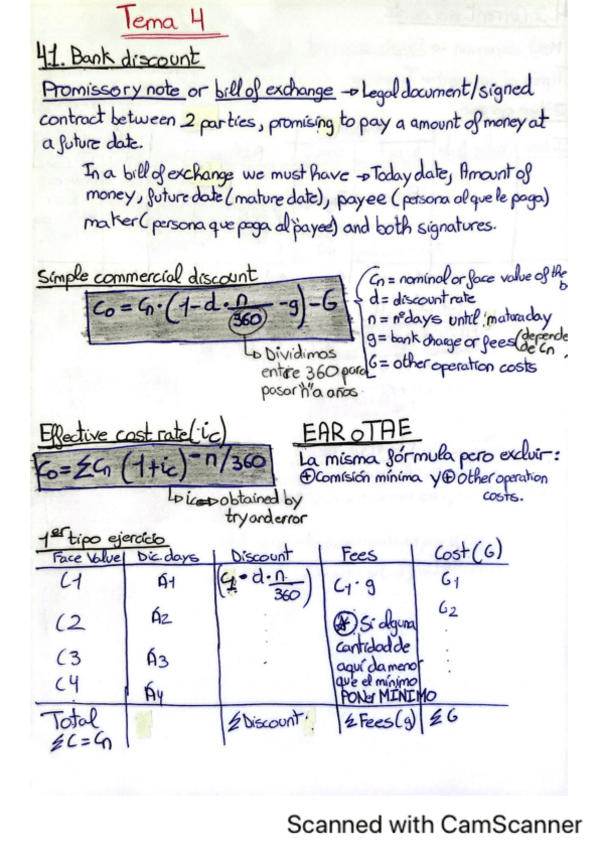 Tema 4
4.1. Bank discount
Promissory note or bill of exchange → Legal document/signed
contract between 2 parties, promising to pay a amount of money at
a future date.
In a bill of exchange we must have → Today date, Amount of
money, future date (mature date), payee (persona al que le paga)
maker (persona que paga al payee) and both signatures.
Simple commercial discount
C₀ = Cn · (1 - d · n/360 - g) - G
Cn = nominal or face value of the b
d = discount rate
n = nº days until maturaday
g = bank charge or fees (depende de Cn
G = other operation costs
↳ Dividimos
entre 360 para
pasar "n" a años
Effective cost rate (ic)
C₀ = ΣCn (1+ic)^-n/360
↳ ic → obtained by
try and error
EAR o TAE
La misma fórmula pero excluir:
⊕ Comisión mínima y ⊕ other operation
costs.
1er tipo ejercicio
Face Value | Dic. days | Discount | Fees | Cost (G)
C1 | A1 | (C1 · d · n/360) | C1 · g | G1
C2 | A2 | ⊛ Si alguna | G2
cantidad de
C3 | A3 | aquí da menor
C4 | A4 | que el mínimo
PONER MÍNIMO
Total | Σ Discount | Σ Fees (g) | Σ G
ΣC = Cn
Scanned with CamScanner